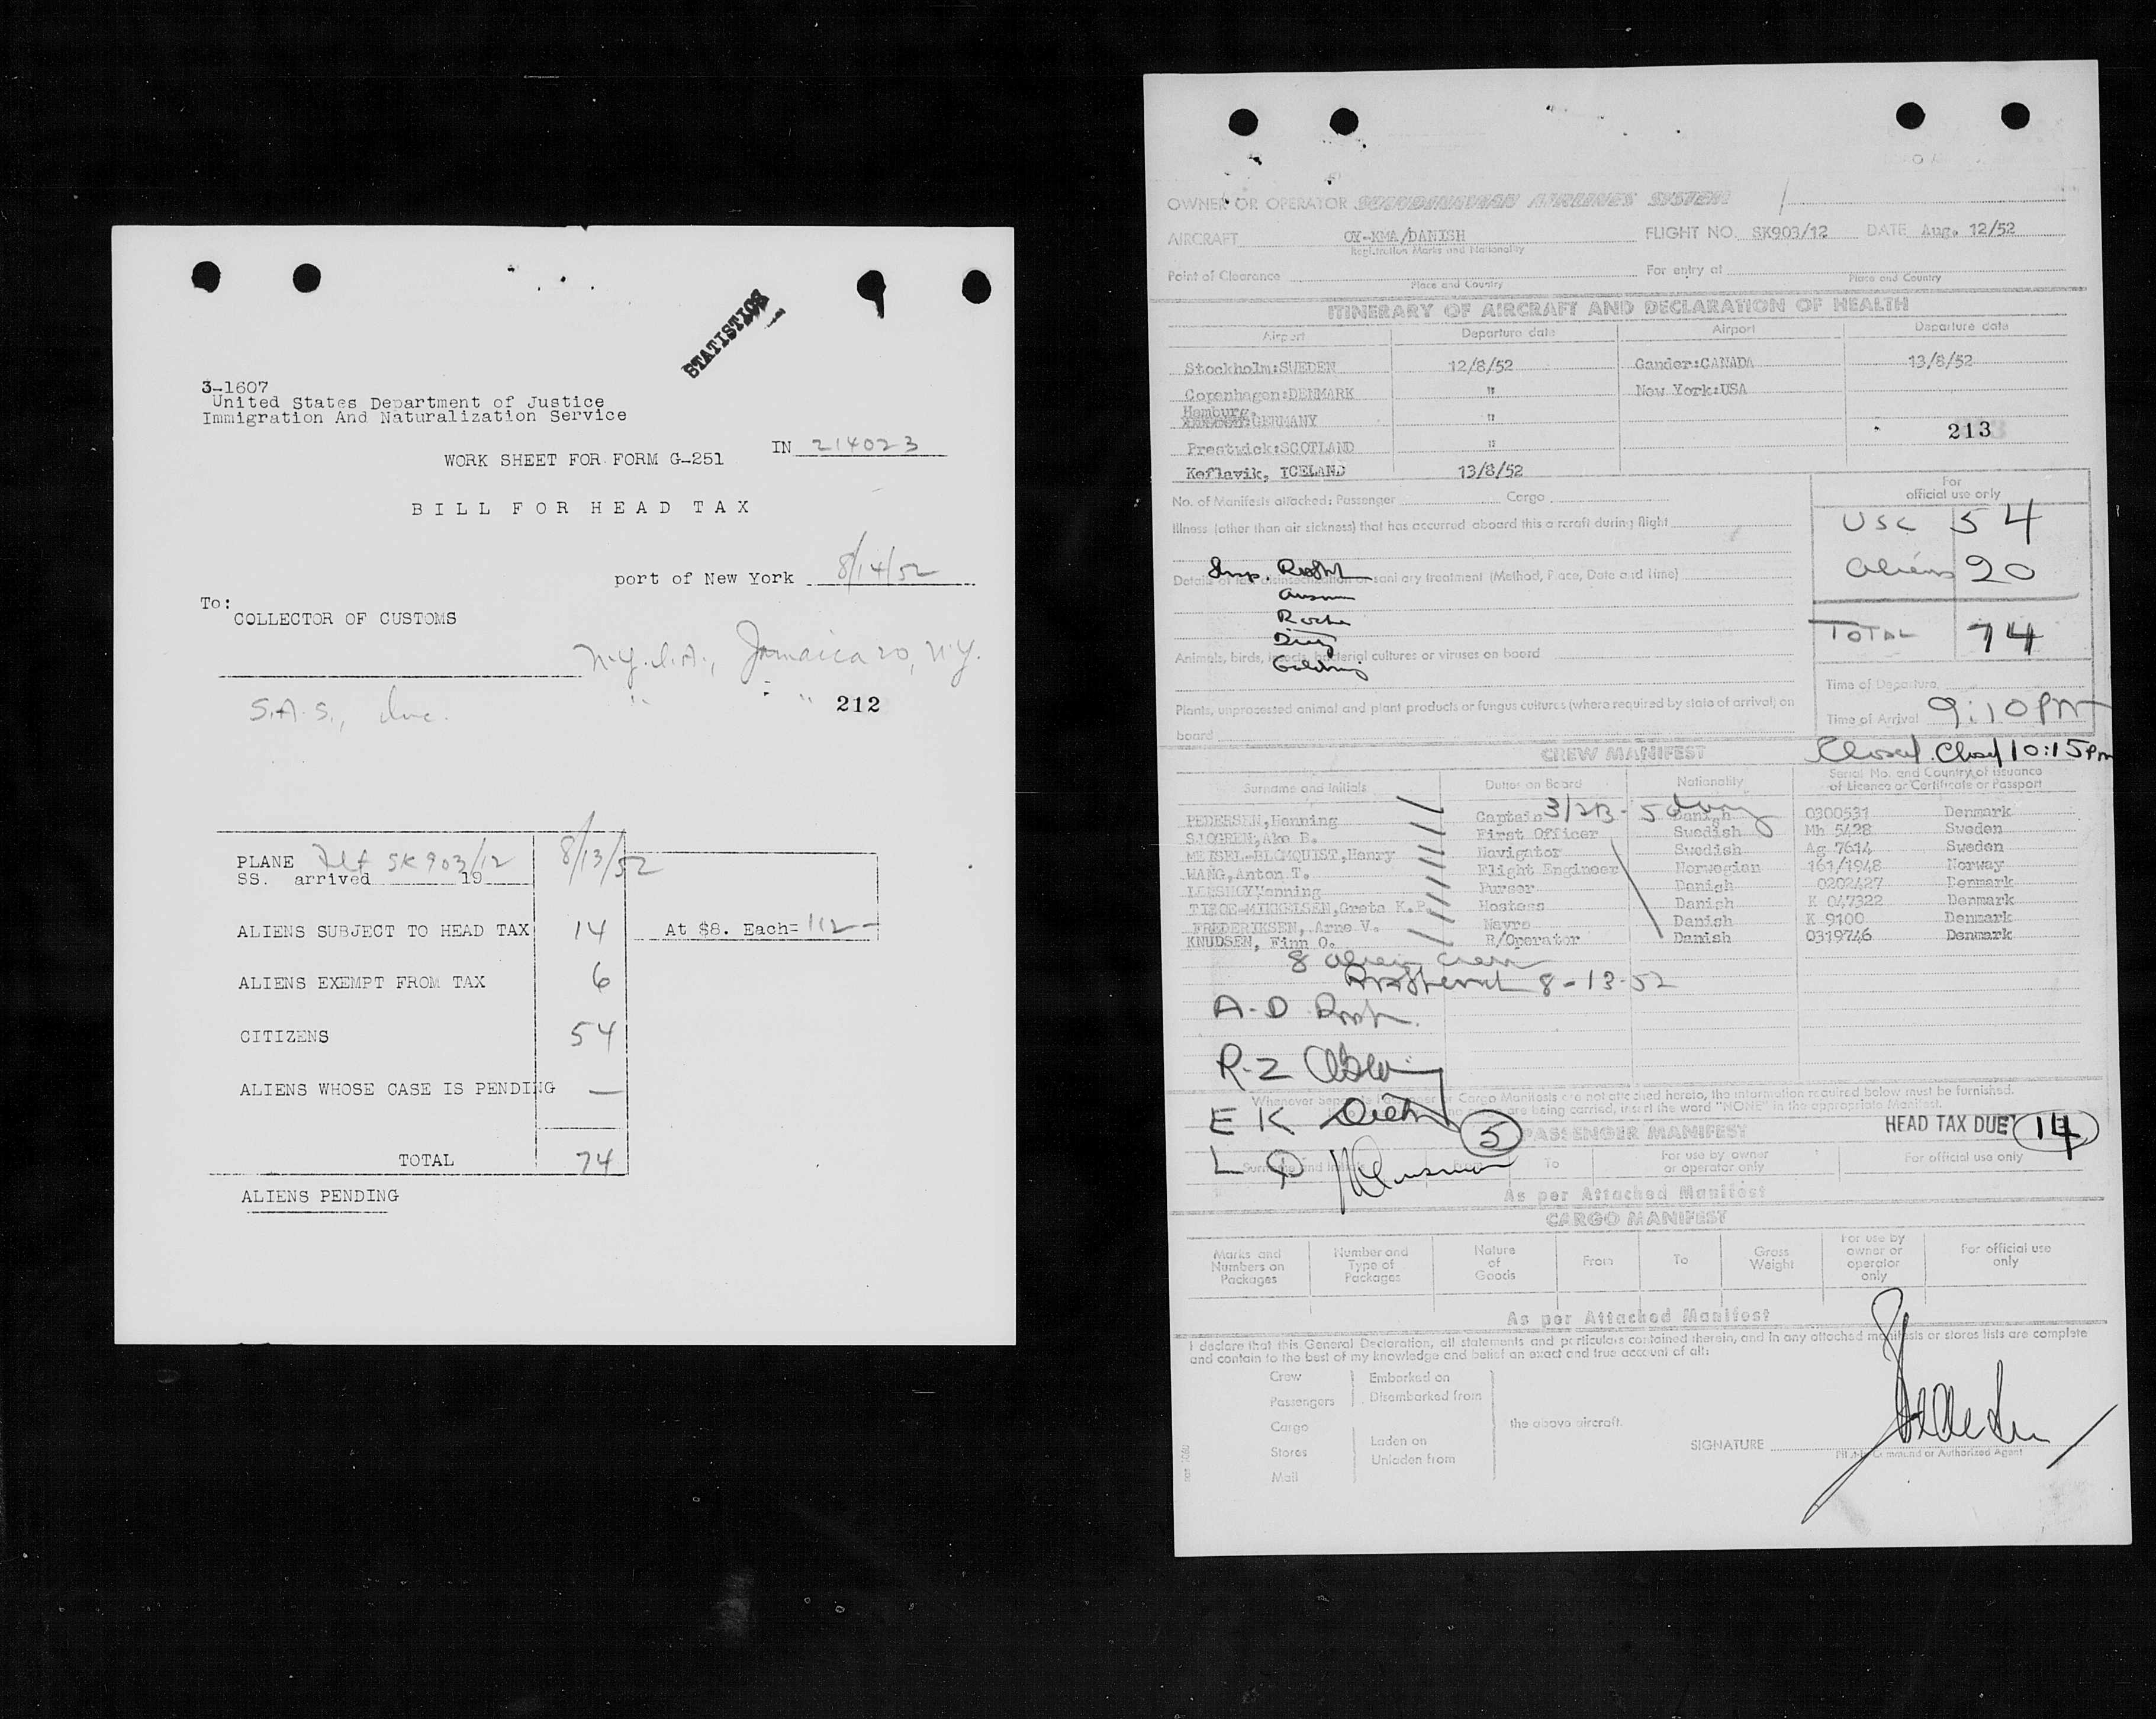 STATISTICS
3-1607
United States Department of Justice
Immigration And Naturalization Service
IN 214023
WORK SHEET FOR FORM G-251
BILL FOR HEAD TAX
port of New York 8/14/52
To:
COLLECTOR OF CUSTOMS
N.Y.I.A., Jamaica 20, N.Y.
S.A.S., Inc. " " " 212
PLANE Flt SK 903/12 8/13/52
SS. arrived 19
ALIENS SUBJECT TO HEAD TAX 14 At $8. Each= 112-
ALIENS EXEMPT FROM TAX 6
CITIZENS 54
ALIENS WHOSE CASE IS PENDING —
TOTAL 74
ALIENS PENDING
OWNER OR OPERATOR SCANDINAVIAN AIRLINES SYSTEM
AIRCRAFT OY-KMA/DANISH FLIGHT NO. SK903/12 DATE Aug. 12/52
Registration Marks and Nationality
Point of Clearance For entry at
Place and Country Place and Country
ITINERARY OF AIRCRAFT AND DECLARATION OF HEALTH
Airport Departure date Airport Departure date
Stockholm:SWEDEN 12/8/52 Gander:CANADA 13/8/52
Copenhagen:DENMARK " New York:USA
Hamburg.
GERMANY "
213
Prestwick:SCOTLAND "
Keflavik, ICELAND 13/8/52
No. of Manifests attached: Passenger Cargo
For
official use only
Illness (other than air sickness) that has occurred aboard this aircraft during flight
USC 54
Aliens 20
TOTAL 74
Details of last disinsectization or sanitary treatment (Method, Place, Date and Time)
Insp.
Roche
Animals, birds, insects, bacterial cultures or viruses on board
Plants, unprocessed animal and plant products or fungus cultures (where required by state of arrival) on
board
Time of Departure
Time of Arrival 9:10 PM
CREW MANIFEST
Closed 10:15 PM
Surname and Initials Duties on Board Nationality Serial No. and Country of issuance
of Licence or Certificate or Passport
PEDERSEN,Henning Captain Danish 0300531 Denmark
SJOGREN,Ake B. First Officer Swedish Mh 5428 Sweden
MEISEL-BLOMQUIST,Henry Navigator Swedish Ag 7614 Sweden
WANG,Anton T. Flight Engineer Norwegian 161/1948 Norway
Purser Danish 0202427 Denmark
Greta K.P. Hostess Danish K 047322 Denmark
FREDERIKSEN, Arne V. Danish K 9100 Denmark
KNUDSEN, Finn O. R/Operator Danish 0319746 Denmark
8 alien crew
8-13-52
A-D
R-Z
Whenever separate Passenger or Cargo Manifests are not attached hereto, the information required below must be furnished.
are being carried, insert the word "NONE" in the appropriate Manifest.
E K
5 PASSENGER MANIFEST HEAD TAX DUE 14
Surname and Initials From To For use by owner
or operator only For official use only
As per Attached Manifest
CARGO MANIFEST
Marks and
Numbers on
Packages
Number and
Type of
Packages
Nature
of
Goods
From
To
Gross
Weight
For use by
owner or
operator
only
For official use
only
As per Attached Manifest
I declare that this General Declaration, all statements and particulars contained therein, and in any attached manifests or stores lists are complete
and contain to the best of my knowledge and belief an exact and true account of all:
Crew Embarked on
Passengers Disembarked from
Cargo the above aircraft.
Stores Laden on
Unladen from
Mail
SIGNATURE
Pilot in Command or Authorized Agent